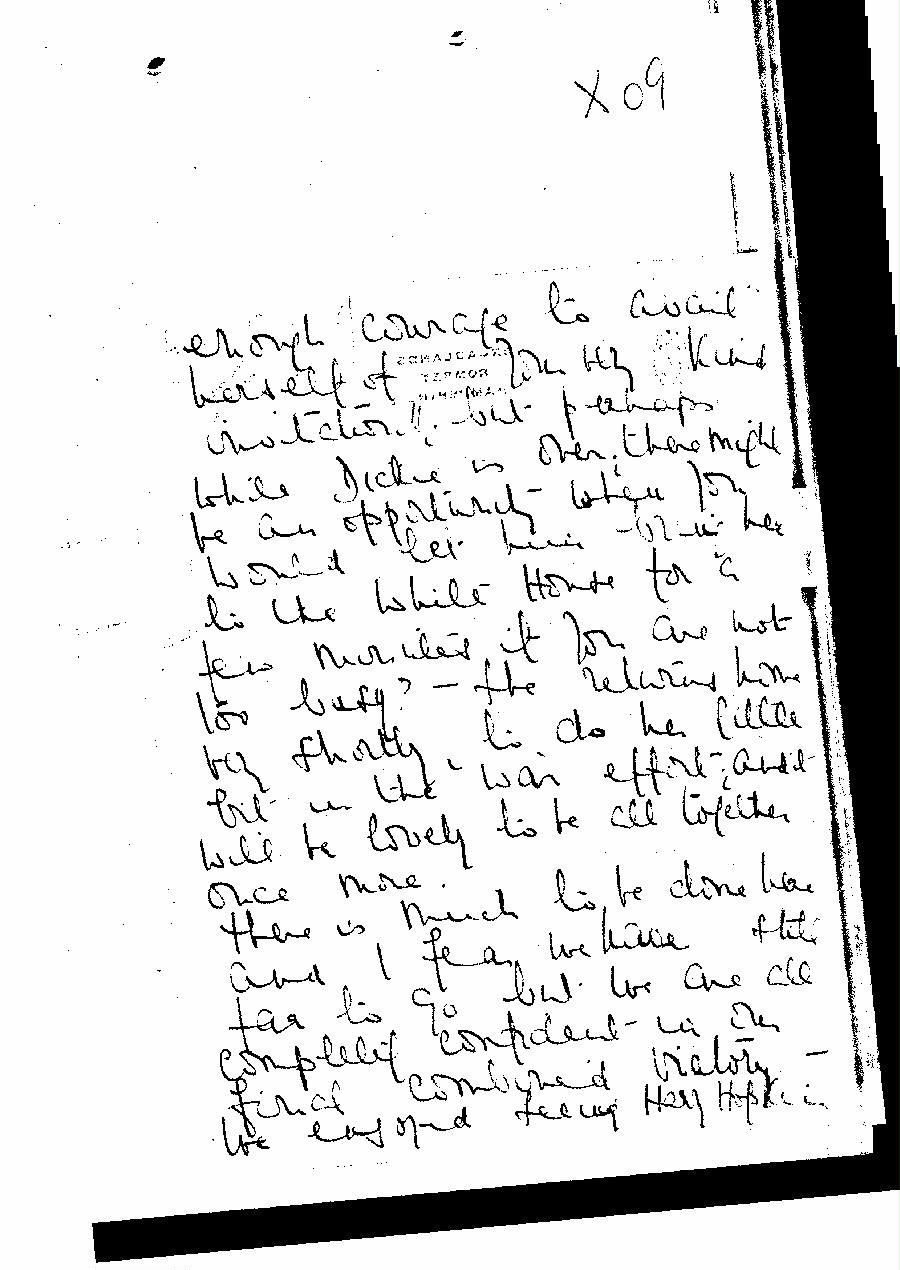 X 09
enough courage to avail
herself of your very kind
invitation!, but perhaps
while Dickie is over, there might
be an opportunity when you
would let him bring her
to the White House for a
few minutes if you are not
too busy? – She returns home
very shortly, to do her little
bit in the war effort, and it
will be lovely to be all together
once more.
There is much to be done here
and I fear we have still
far to go but we are all
completely confident in our
final combined victory –
We enjoyed seeing Harry Hopkins